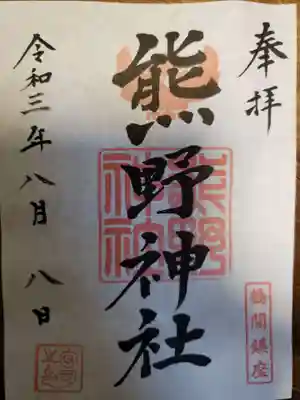 奉拝
熊野神社
熊野
神社
鶴間鎮座
令和三年八月八日